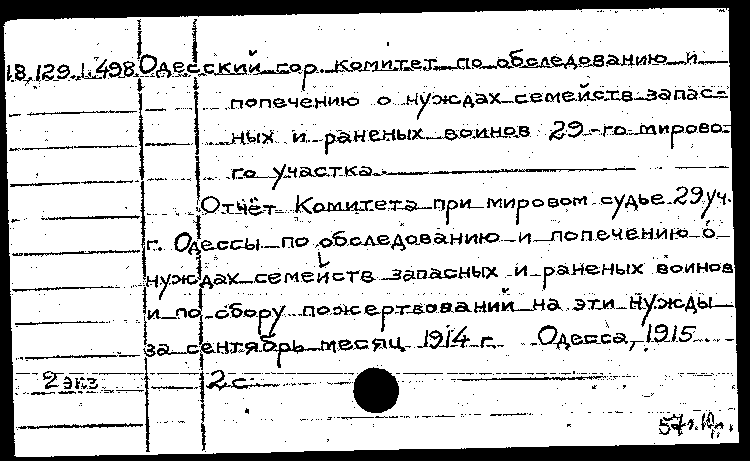 18.129.1.498 Одесский гор. комитет по обследованию и
попечению о нуждах семейств запас-
ных и раненых воинов 29-го мирово-
го участка.
Отчёт Комитета при мировом судье 29 уч.
г. Одессы по обследованию и попечению о
нуждах семейств запасных и раненых воинов
и по сбору пожертвований на эти нужды
за сентябрь месяц 1914 г. Одесса, 1915.
2 экз 2 с.